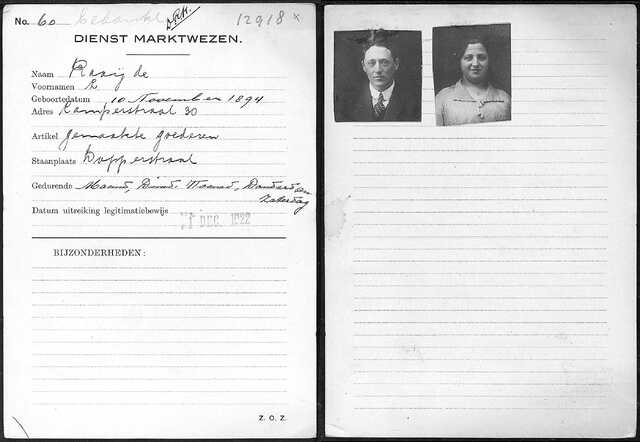 No. 60 12918 x
DIENST MARKTWEZEN.
Naam Raaij de
Voornamen L
Geboortedatum 10 November 1894
Adres Camperstraat 30
Artikel gemaakte goederen
Staanplaats Dapperstraat
Gedurende Maand, Dinsd. Woensd, Donderd en
Zaterdag
Datum uitreiking legitimatiebewijs DEC. 1922
BIJZONDERHEDEN:
Z. O. Z.